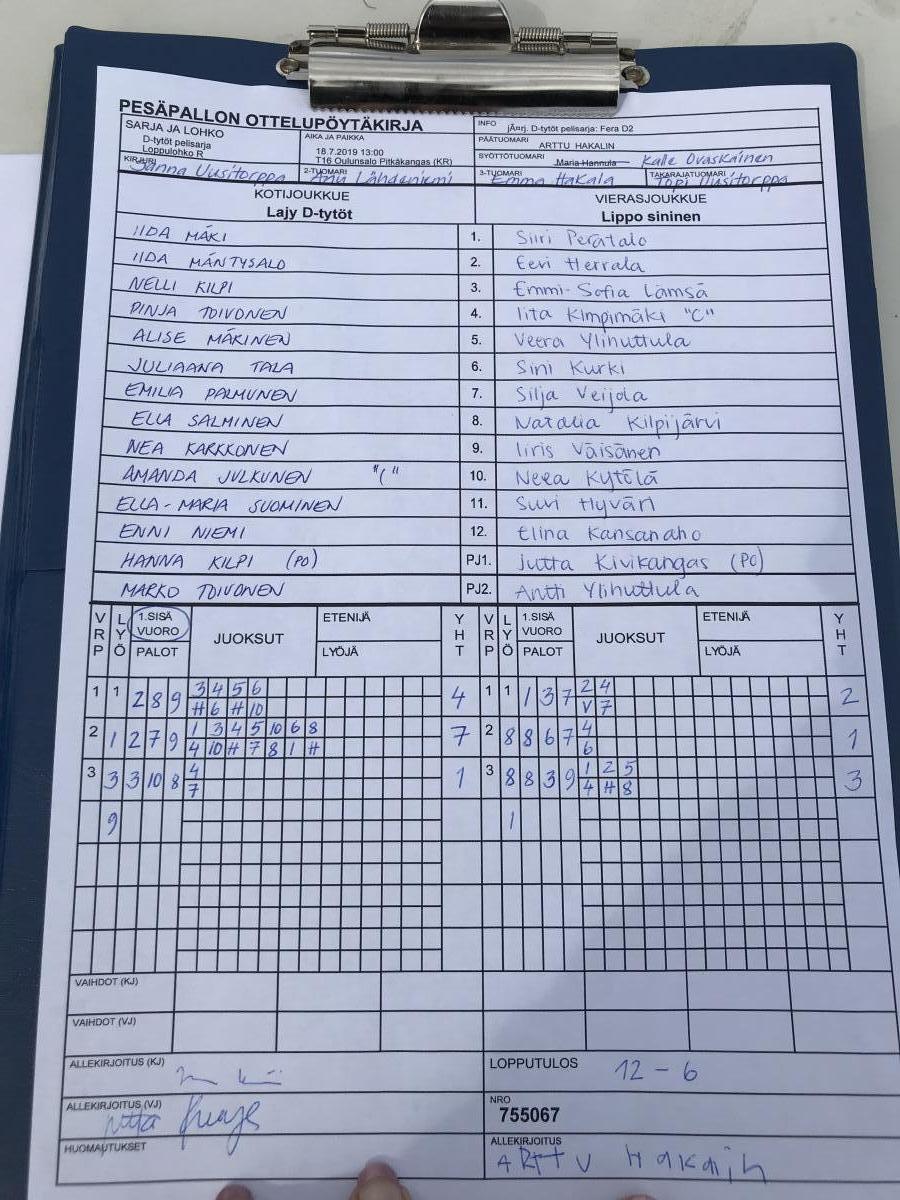 PESÄPALLON OTTELUPÖYTÄKIRJA
SARJA JA LOHKO
D-tytöt pelisarja
Loppulohko R
AIKA JA PAIKKA
18.7.2019 13:00
T16 Oulunsalo Pitkäkangas (KR)
INFO
jÃ¤rj. D-tytöt pelisarja: Fera D2
PÄÄTUOMARI
ARTTU HAKALIN
SYÖTTÖTUOMARI Maria Hannula Kalle Ovaskainen
KIRJURI Sanna Uusitorppa
2-TUOMARI Anu Lähdeniemi
3-TUOMARI Emma Hakala
TAKARAJATUOMARI Topi Uusitorppa
KOTIJOUKKUE
Lajy D-tytöt
VIERASJOUKKUE
Lippo sininen
IIDA MÄKI 1. Siiri Perätalo
IIDA MÄNTYSALO 2. Eevi Herrala
NELLI KILPI 3. Emmi-Sofia Lämsä
PINJA TOIVONEN 4. Iita Kimpimäki "C"
ALISE MÄKINEN 5. Veera Ylihuttula
JULIAANA TALA 6. Sini Kurki
EMILIA PALMUNEN 7. Silja Veijola
ELLA SALMINEN 8. Natalia Kilpijärvi
NEA KARKKONEN 9. Iiris Väisänen
AMANDA JULKUNEN "C" 10. Neea Kytölä
ELLA-MARIA SUOMINEN 11. Suvi Hyväri
ENNI NIEMI 12. Elina Kansanaho
HANNA KILPI (PO) PJ1. Jutta Kivikangas (PO)
MARKO TOIVONEN PJ2. Antti Ylihuttula
VRP LYÖ 1.SISÄ VUORO PALOT JUOKSUT ETENIJÄ LYÖJÄ YHT VRP LYÖ 1.SISÄ VUORO PALOT JUOKSUT ETENIJÄ LYÖJÄ YHT
1 1 2 8 9 3 4 5 6 4 1 1 1 3 7 2 4 2
H 6 H 10 V 7
2 1 2 7 9 1 3 4 5 10 6 8 7 2 8 8 6 7 4 1
4 10 H 7 8 1 H 6
3 3 3 10 8 4 1 3 8 8 3 9 1 2 5 3
7 4 H 8
9 1
VAIHDOT (KJ)
VAIHDOT (VJ)
ALLEKIRJOITUS (KJ)
LOPPUTULOS 12-6
ALLEKIRJOITUS (VJ)
NRO
755067
HUOMAUTUKSET
ALLEKIRJOITUS
ARTTU Hakalin